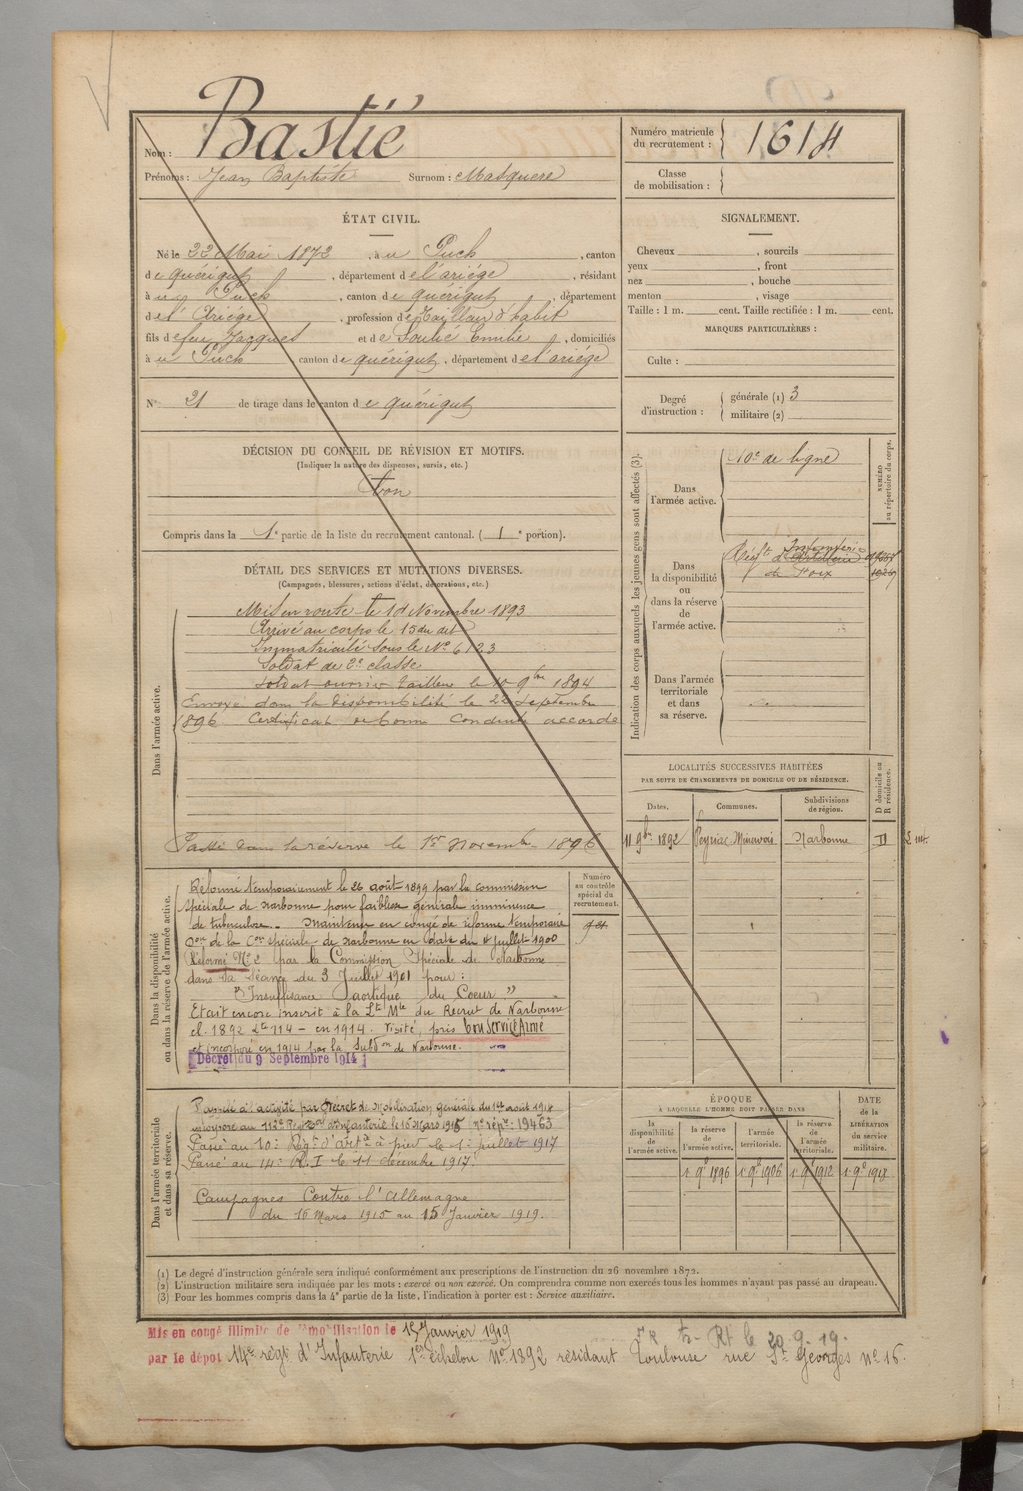 Nom : Bastié
Prénoms : Jean Baptiste Surnom : Masquere
Numéro matricule du recrutement : 1614
Classe de mobilisation :
ÉTAT CIVIL.
Né le 22 Mai 1872, à u Puch, canton
de quérigut, département de l'ariége, résidant
à u Puch, canton de quérigut, département
de l'Ariége, profession de Tailleur d'habit
fils de feu Jacques et de Soulié Emilie, domiciliés
à u Puch canton de quérigut, département de l'ariége
N° 21 de tirage dans le canton de quérigut
DÉCISION DU CONSEIL DE RÉVISION ET MOTIFS.
(Indiquer la nature des dispenses, sursis, etc.)
bon
Compris dans la 1e partie de la liste du recrutement cantonal. (1e portion).
DÉTAIL DES SERVICES ET MUTATIONS DIVERSES.
(Campagnes, blessures, actions d'éclat, décorations, etc.)
Dans l'armée active.
Mis en route le 1d Novembre 1893
Arrivé au corps le 15 du dit
Immatriculé sous le No 6123
Soldat de 2e classe
Soldat ouvrier tailleur le 10 9bre 1894
Envoyé dans la disponibilité le 22 Septembre
1896 Certificat de bonne Conduite accordé
Passé dans la réserve le 1er Novembre 1896
Dans la disponibilité ou dans la réserve de l'armée active.
Réformé temporairement le 26 août 1899 par la commission
spéciale de Narbonne pour faiblesse générale imminence
de tuberculose. Maintenu en congé de réforme temporaire
Don de la Con spéciale de Narbonne en date du 4 juillet 1900
Réformé No 2 par la Commission Spéciale de Narbonne
dans sa Séance du 3 Juillet 1901 pour :
"Insuffisance aortique du Coeur"
Etait encore inscrit à la Lte Mle du Recrut de Narbonne
cl. 1892 Lte 114 - en 1914. Visité, pris bon Service Armé
et incorporé en 1914 par la Subdon de Narbonne.
Décret du 9 Septembre 1914
Numéro au contrôle spécial du recrutement.
Dans l'armée territoriale et dans sa réserve.
Rappelé à l'activité par Décret de Mobilisation générale du 1er août 1914
incorporé au 112e Regt d'Infanterie le 16 mars 1915 (No rép: 19463
Passé au 10e Régt d'Artie à pied le 1er juillet 1917
Passé au 14e R.I le 11 décembre 1917
Campagnes Contre l'Allemagne
du 16 Mars 1915 au 15 Janvier 1919.
SIGNALEMENT.
Cheveux , sourcils
yeux , front
nez , bouche
menton , visage
Taille : 1 m. cent. Taille rectifiée : 1 m. cent.
MARQUES PARTICULIÈRES :
Culte :
Degré d'instruction : générale (1) 3
militaire (2)
Indication des corps auxquels les jeunes gens sont affectés (3).
NUMÉRO au répertoire du corps.
Dans l'armée active. 10e de ligne
Dans la disponibilité ou dans la réserve de l'armée active. Régt d'Infanterie de Foix
Dans l'armée territoriale et dans sa réserve.
LOCALITÉS SUCCESSIVES HABITÉES
PAR SUITE DE CHANGEMENTS DE DOMICILE OU DE RÉSIDENCE.
Dates. Communes. Subdivisions de région. D domicile ou R résidence.
11 9bre 1892 Peyriac-Minervois Narbonne D L 114.
ÉPOQUE
À LAQUELLE L'HOMME DOIT PASSER DANS
la disponibilité de l'armée active. la réserve de l'armée active. l'armée territoriale. la réserve de l'armée territoriale.
DATE de la LIBÉRATION du service militaire.
1 9bre 1896 1 9bre 1906 1 9bre 1912 1 9bre 1918
(1) Le degré d'instruction générale sera indiqué conformément aux prescriptions de l'instruction du 26 novembre 1872.
(2) L'instruction militaire sera indiquée par les mots : exercé ou non exercé. On comprendra comme non exercés tous les hommes n'ayant pas passé au drapeau.
(3) Pour les hommes compris dans la 4e partie de la liste, l'indication à porter est : Service auxiliaire.
Mis en congé illimité de démobilisation le 15 Janvier 1919
Rt le 20-9-19.
par le dépot 14e régt d'Infanterie 1er échelon No 1892 résidant Toulouse rue St Georges no 16.